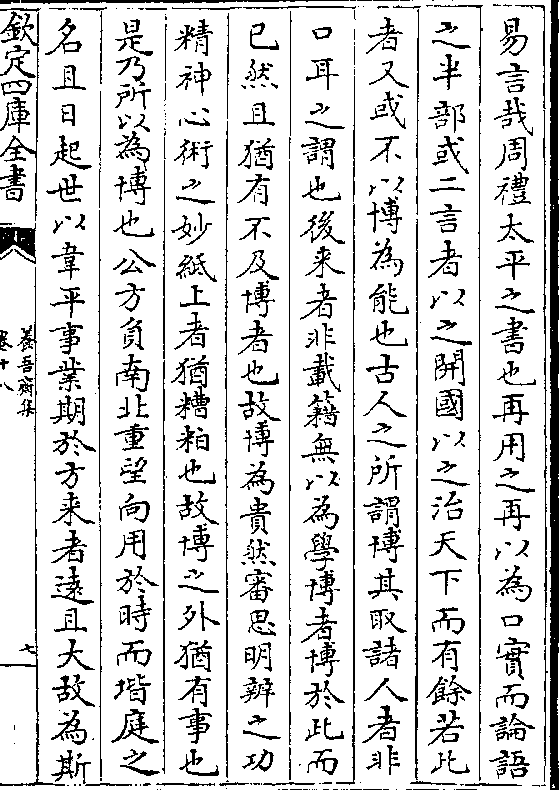 易言哉周禮太平之書也再用之再以為口實而論語
之半部或二言者以之開國以之治天下而有餘若此
者又或不以博為能也古人之所謂博其取諸人者非
口耳之謂也後来者非載籍無以為學博者博於此而
已然且猶有不及博者也故博為貴然審思明辨之功
精神心術之妙紙上者猶糟粕也故博之外猶有事也
是乃所以為博也公方負南北重望向用於時而堦庭之
名且日起世以韋平事業期於方来者遠且大故為斯
欽定四庫全書
養吾齋集
卷十八
七